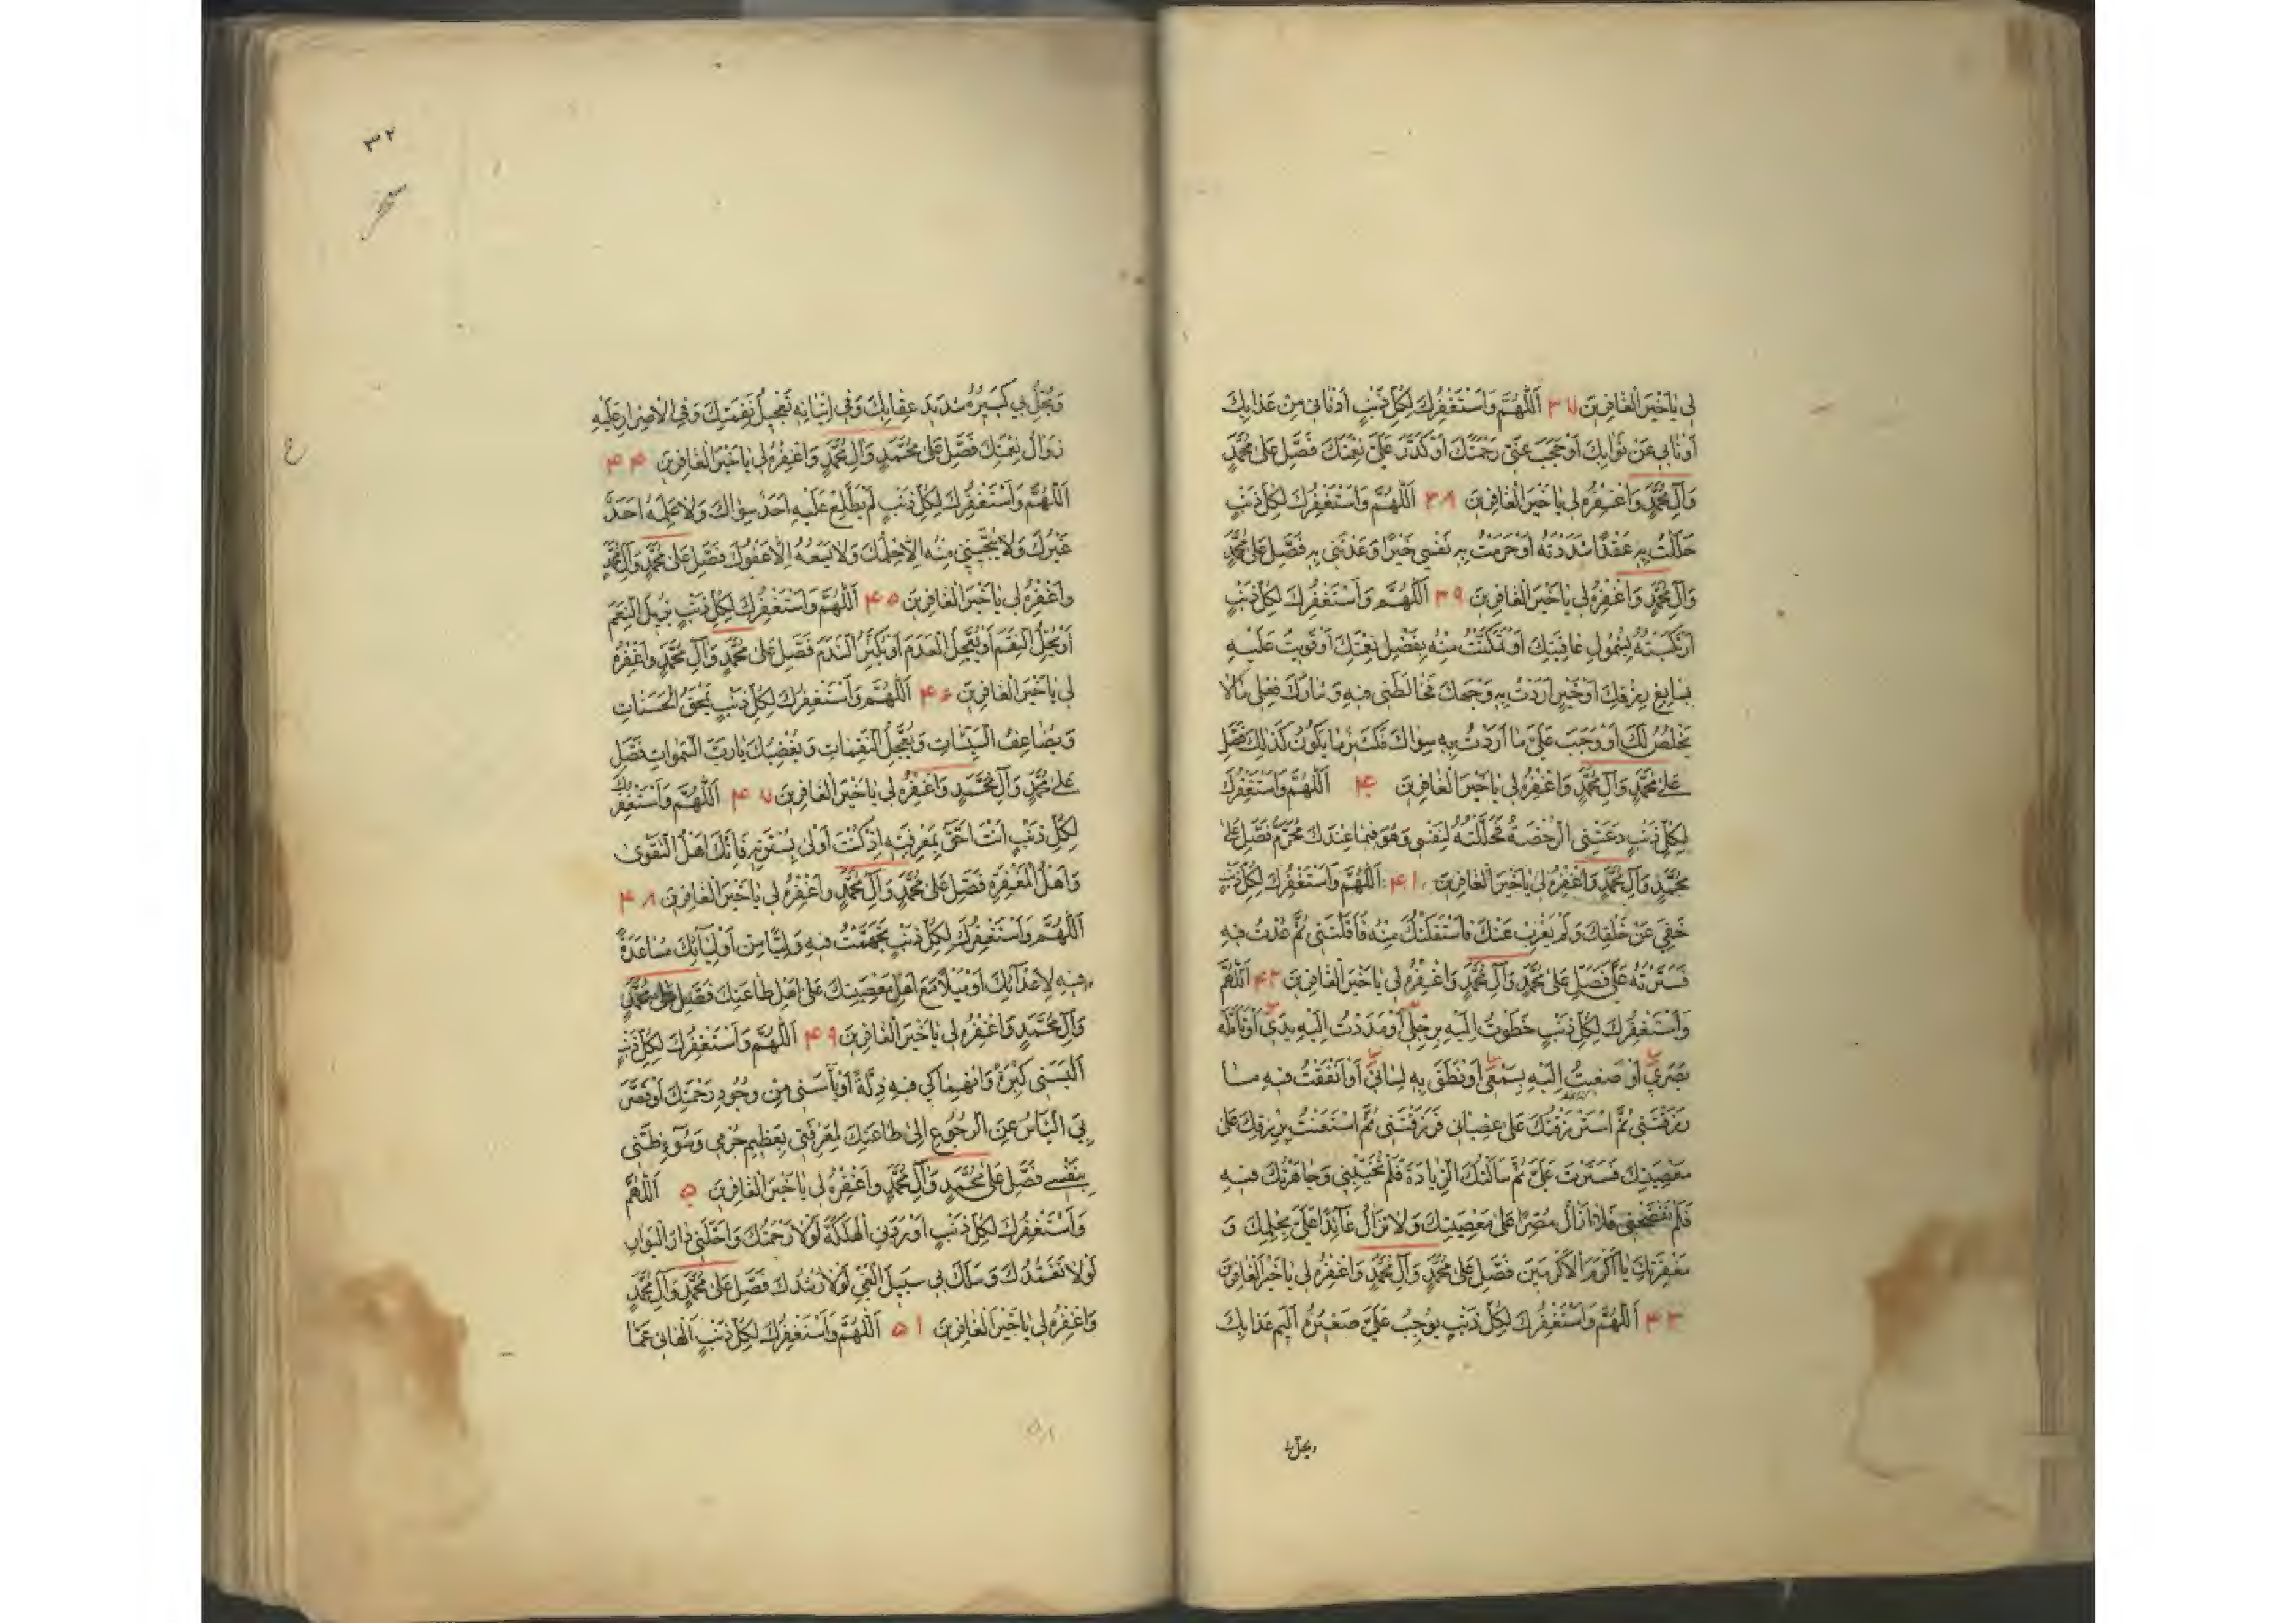 لِي يَا خَيْرَ الْغَافِرِينَ ۳۷ اَللّٰهُمَّ وَاَسْتَغْفِرُكَ لِكُلِّ ذَنْبٍ اَدْنَانِي مِنْ عَذَابِكَ
اَوْ نَاٰنِي عَنْ ثَوَابِكَ اَوْ حَجَبَ عَنِّي رَحْمَتَكَ اَوْ كَدَّرَ عَلَيَّ نِعْمَتَكَ فَصَلِّ عَلٰى مُحَمَّدٍ
وَاٰلِ مُحَمَّدٍ وَاغْفِرْهُ لِي يَا خَيْرَ الْغَافِرِينَ ۳۸ اَللّٰهُمَّ وَاَسْتَغْفِرُكَ لِكُلِّ ذَنْبٍ
حَلَلْتُ بِهِ عَقْدًا شَدَدْتَهُ اَوْ حَرَمْتُ بِهِ نَفْسِي خَيْرًا وَعَدْتَنِي بِهِ فَصَلِّ عَلٰى مُحَمَّدٍ
وَاٰلِ مُحَمَّدٍ وَاغْفِرْهُ لِي يَا خَيْرَ الْغَافِرِينَ ۳۹ اَللّٰهُمَّ وَاَسْتَغْفِرُكَ لِكُلِّ ذَنْبٍ
اِرْتَكَبْتُهُ بِشُمُولِ عَافِيَتِكَ اَوْ تَمَكَّنْتُ مِنْهُ بِفَضْلِ نِعْمَتِكَ اَوْ قَوِيتُ عَلَيْهِ
بِسَابِغِ رِزْقِكَ اَوْ خَيْرٍ اَرَدْتُ بِهِ وَجْهَكَ فَخَالَطَنِي فِيهِ وَشَارَكَ فِعْلِي مَا لَا
يَخْلُصُ لَكَ اَوْ وَجَبَ عَلَيَّ مَا اَرَدْتُ بِهِ سِوَاكَ فَكَثِيرٌ مَا يَكُونُ كَذٰلِكَ فَصَلِّ
عَلٰى مُحَمَّدٍ وَاٰلِ مُحَمَّدٍ وَاغْفِرْهُ لِي يَا خَيْرَ الْغَافِرِينَ ۴۰ اَللّٰهُمَّ وَاَسْتَغْفِرُكَ
لِكُلِّ ذَنْبٍ دَعَتْنِي الرُّخْصَةُ فَحَلَّلْتُهُ لِنَفْسِي وَهُوَ فِيمَا عِنْدَكَ مُحَرَّمٌ فَصَلِّ عَلٰى
مُحَمَّدٍ وَاٰلِ مُحَمَّدٍ وَاغْفِرْهُ لِي يَا خَيْرَ الْغَافِرِينَ ۴۱ اَللّٰهُمَّ وَاَسْتَغْفِرُكَ لِكُلِّ ذَنْبٍ
خَفِيَ عَنْ خَلْقِكَ وَلَمْ يَعْزُبْ عَنْكَ فَاسْتَقَلْتُكَ مِنْهُ فَاَقَلْتَنِي ثُمَّ عُدْتُ فِيهِ
فَسَتَرْتَهُ عَلَيَّ فَصَلِّ عَلٰى مُحَمَّدٍ وَاٰلِ مُحَمَّدٍ وَاغْفِرْهُ لِي يَا خَيْرَ الْغَافِرِينَ ۴۲ اَللّٰهُمَّ
وَاَسْتَغْفِرُكَ لِكُلِّ ذَنْبٍ خَطَوْتُ اِلَيْهِ بِرِجْلِي اَوْ مَدَدْتُ اِلَيْهِ يَدَيَّ اَوْ تَاَمَّلَهُ
بَصَرِي اَوْ صَغَيْتُ اِلَيْهِ بِسَمْعِي اَوْ نَطَقَ بِهِ لِسَانِي اَوْ اَنْفَقْتُ فِيهِ مَا
رَزَقْتَنِي ثُمَّ اسْتَرْزَقْتُكَ عَلٰى عِصْيَانِي فَرَزَقْتَنِي ثُمَّ اسْتَعَنْتُ بِرِزْقِكَ عَلٰى
مَعْصِيَتِكَ فَسَتَرْتَ عَلَيَّ ثُمَّ سَاَلْتُكَ الزِّيَادَةَ فَلَمْ تُخَيِّبْنِي وَجَاهَرْتُكَ فِيهِ
فَلَمْ تَفْضَحْنِي فَلَا اَزَالُ مُصِرًّا عَلٰى مَعْصِيَتِكَ وَلَا تَزَالُ عَائِدًا عَلَيَّ بِحِلْمِكَ وَ
مَغْفِرَتِكَ يَا اَكْرَمَ الْاَكْرَمِينَ فَصَلِّ عَلٰى مُحَمَّدٍ وَاٰلِ مُحَمَّدٍ وَاغْفِرْهُ لِي يَا خَيْرَ الْغَافِرِينَ
۴۳ اَللّٰهُمَّ وَاَسْتَغْفِرُكَ لِكُلِّ ذَنْبٍ يُوجِبُ عَلَيَّ صَغِيرُهُ اَلِيمَ عَذَابِكَ
ويحلّ
۳۲
وَيُحِلُّ بِي كَبِيرُهُ شَدِيدَ عِقَابِكَ وَفِي اِتْيَانِهِ تَعْجِيلُ نَقِمَتِكَ وَفِي الْاِصْرَارِ عَلَيْهِ
زَوَالُ نِعْمَتِكَ فَصَلِّ عَلٰى مُحَمَّدٍ وَاٰلِ مُحَمَّدٍ وَاغْفِرْهُ لِي يَا خَيْرَ الْغَافِرِينَ ۴۴
اَللّٰهُمَّ وَاَسْتَغْفِرُكَ لِكُلِّ ذَنْبٍ لَمْ يَطَّلِعْ عَلَيْهِ اَحَدٌ سِوَاكَ وَلَا عَلِمَهُ اَحَدٌ
غَيْرُكَ وَلَا يُنَجِّينِي مِنْهُ اِلَّا حِلْمُكَ وَلَا يَسَعُهُ اِلَّا عَفْوُكَ فَصَلِّ عَلٰى مُحَمَّدٍ وَاٰلِ مُحَمَّدٍ
وَاغْفِرْهُ لِي يَا خَيْرَ الْغَافِرِينَ ۴۵ اَللّٰهُمَّ وَاَسْتَغْفِرُكَ لِكُلِّ ذَنْبٍ يُزِيلُ النِّعَمَ
اَوْ يُحِلُّ النِّقَمَ اَوْ يُعَجِّلُ الْعَدَمَ اَوْ يُكَثِّرُ النَّدَمَ فَصَلِّ عَلٰى مُحَمَّدٍ وَاٰلِ مُحَمَّدٍ وَاغْفِرْهُ
لِي يَا خَيْرَ الْغَافِرِينَ ۴۶ اَللّٰهُمَّ وَاَسْتَغْفِرُكَ لِكُلِّ ذَنْبٍ يَمْحَقُ الْحَسَنَاتِ
وَيُضَاعِفُ السَّيِّئَاتِ وَيُعَجِّلُ النَّقِمَاتِ وَيُغْضِبُكَ يَا رَبَّ السَّمٰوَاتِ فَصَلِّ
عَلٰى مُحَمَّدٍ وَاٰلِ مُحَمَّدٍ وَاغْفِرْهُ لِي يَا خَيْرَ الْغَافِرِينَ ۴۷ اَللّٰهُمَّ وَاَسْتَغْفِرُكَ
لِكُلِّ ذَنْبٍ اَنْتَ اَحَقُّ بِمَعْرِفَتِهِ اِذْ كُنْتَ اَوْلٰى بِسَتْرِهِ فَاِنَّكَ اَهْلُ التَّقْوٰى
وَاَهْلُ الْمَغْفِرَةِ فَصَلِّ عَلٰى مُحَمَّدٍ وَاٰلِ مُحَمَّدٍ وَاغْفِرْهُ لِي يَا خَيْرَ الْغَافِرِينَ ۴۸
اَللّٰهُمَّ وَاَسْتَغْفِرُكَ لِكُلِّ ذَنْبٍ تَجَهَّمْتُ فِيهِ وَلِيًّا مِنْ اَوْلِيَائِكَ مُسَاعَدَةً
فِيهِ لِاَعْدَائِكَ اَوْ مَيْلًا مَعَ اَهْلِ مَعْصِيَتِكَ عَلٰى اَهْلِ طَاعَتِكَ فَصَلِّ عَلٰى مُحَمَّدٍ
وَاٰلِ مُحَمَّدٍ وَاغْفِرْهُ لِي يَا خَيْرَ الْغَافِرِينَ ۴۹ اَللّٰهُمَّ وَاَسْتَغْفِرُكَ لِكُلِّ ذَنْبٍ
اَلْبَسَنِي كِبْرَةً وَانْهِمَاكِي فِيهِ ذِلَّةً اَوْ يَاٰسَنِي مِنْ وُجُودِ رَحْمَتِكَ اَوْ قَصَّرَ
بِيَ الْيَاْسُ عَنِ الرُّجُوعِ اِلٰى طَاعَتِكَ لِمَعْرِفَتِي بِعَظِيمِ جُرْمِي وَسُوءِ ظَنِّي
بِنَفْسِي فَصَلِّ عَلٰى مُحَمَّدٍ وَاٰلِ مُحَمَّدٍ وَاغْفِرْهُ لِي يَا خَيْرَ الْغَافِرِينَ ۵۰ اَللّٰهُمَّ
وَاَسْتَغْفِرُكَ لِكُلِّ ذَنْبٍ اَوْرَدَنِي الْهَلَكَةَ لَوْلَا رَحْمَتُكَ وَاَحَلَّنِي دَارَ الْبَوَارِ
لَوْلَا تَغَمُّدُكَ وَسَلَكَ بِي سَبِيلَ الْغَيِّ لَوْلَا رُشْدُكَ فَصَلِّ عَلٰى مُحَمَّدٍ وَاٰلِ مُحَمَّدٍ
وَاغْفِرْهُ لِي يَا خَيْرَ الْغَافِرِينَ ۵۱ اَللّٰهُمَّ وَاَسْتَغْفِرُكَ لِكُلِّ ذَنْبٍ اَلْهَانِي عَمَّا